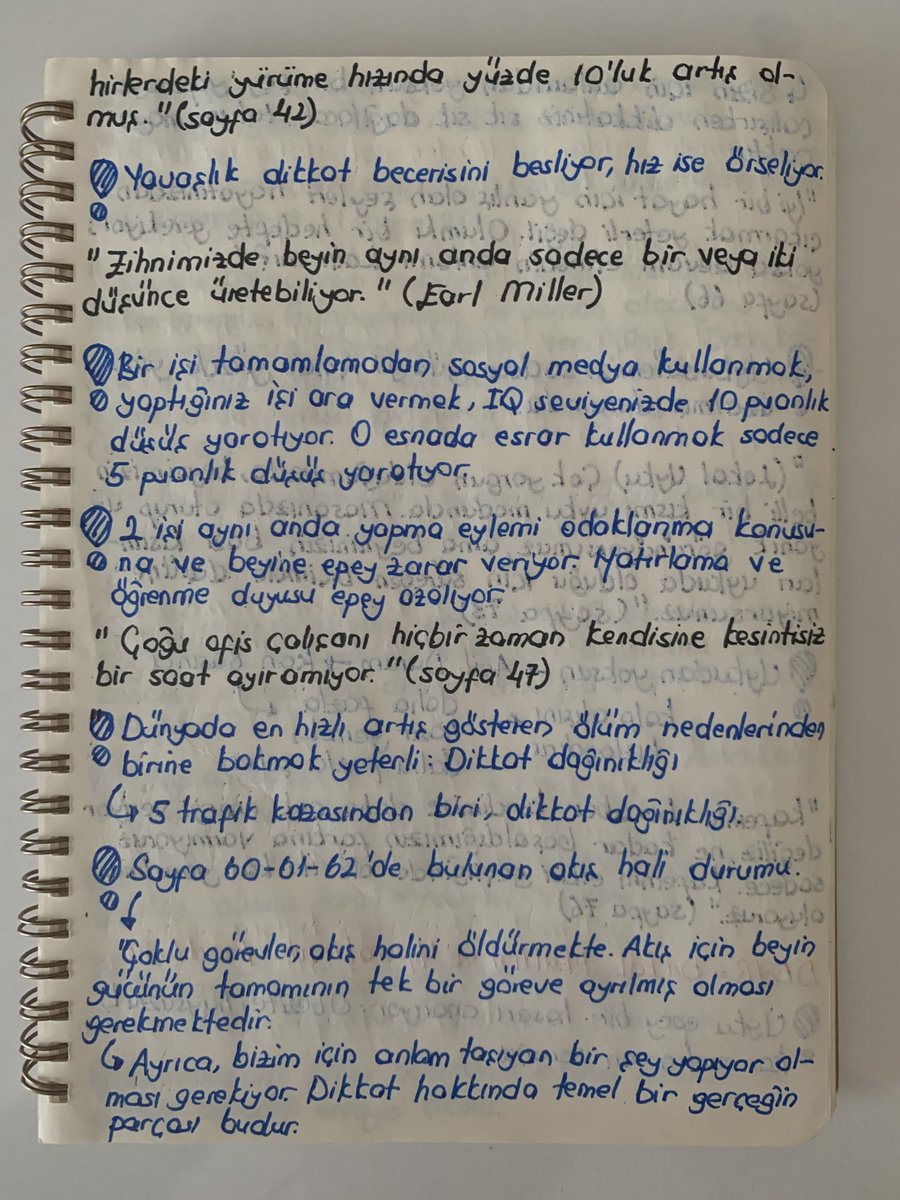 hirlerdeki yürüme hızında yüzde 10'luk artış ol-
muş." (sayfa 42)
Yavaşlık dikkat becerisini besliyor, hız ise örseliyor.
"Zihnimizde, beyin aynı anda sadece bir veya iki
düşünce üretebiliyor." (Earl Miller)
Bir işi tamamlamadan sosyal medya kullanmak,
yaptığınız işi ara vermek, IQ seviyenizde 10 puanlık
düşüş yaratıyor. O esnada esrar kullanmak sadece
5 puanlık düşüş yaratıyor.
2 işi aynı anda yapma eylemi odaklanma konusu-
na ve beyine epey zarar veriyor. Hatırlama ve
öğrenme duyusu epey azalıyor.
"Çoğu ofis çalışanı hiçbir zaman kendisine kesintisiz
bir saat ayıramıyor." (sayfa 47)
Dünyada en hızlı artış gösteren ölüm nedenlerinden
birine bakmak yeterli: Dikkat dağınıklığı
↳ 5 trafik kazasından biri, dikkat dağınıklığı.
Sayfa 60-61-62'de bulunan akış hali durumu.
"Çoklu görevler, akış halini öldürmekte. Akış için beyin
gücünün tamamının tek bir göreve ayrılmış olması
gerekmektedir.
↳ Ayrıca, bizim için anlam taşıyan bir şey yapıyor ol-
ması gerekiyor. Dikkat hakkında temel bir gerçeğin
parçası budur.